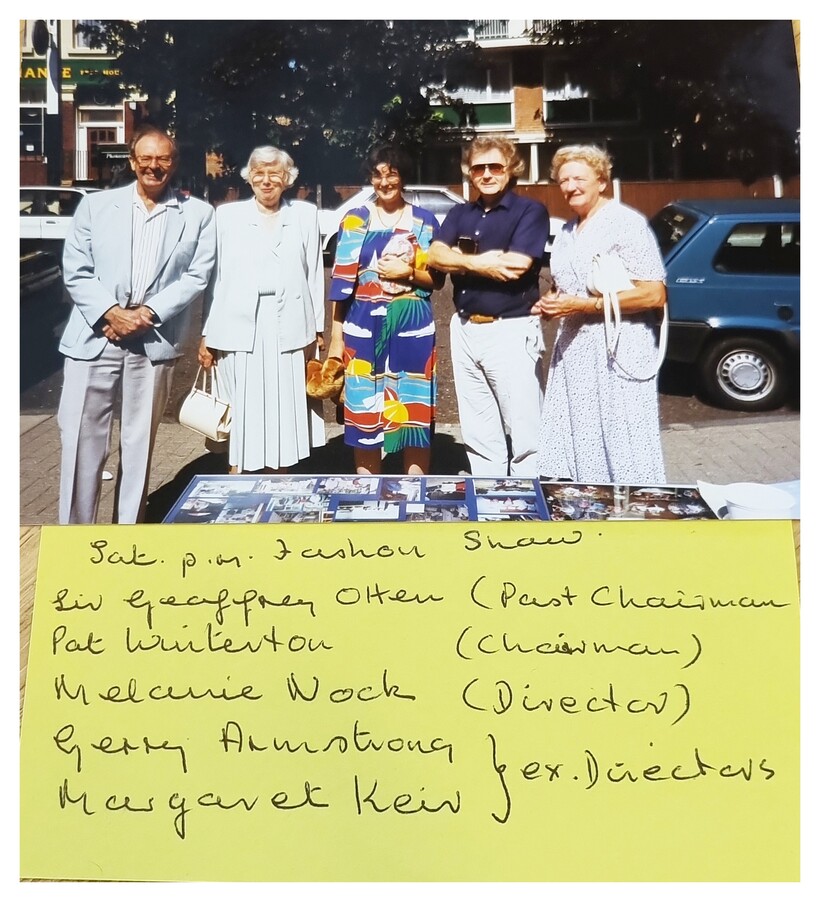 ANCE
Sat. p.m. Fashon Show.
Sir Geoffrey Otten (Past Chairman
Pat Winterton (Chairman)
Melanie Nock (Director)
Gerry Armstrong } ex. Directors
Margaret Keir